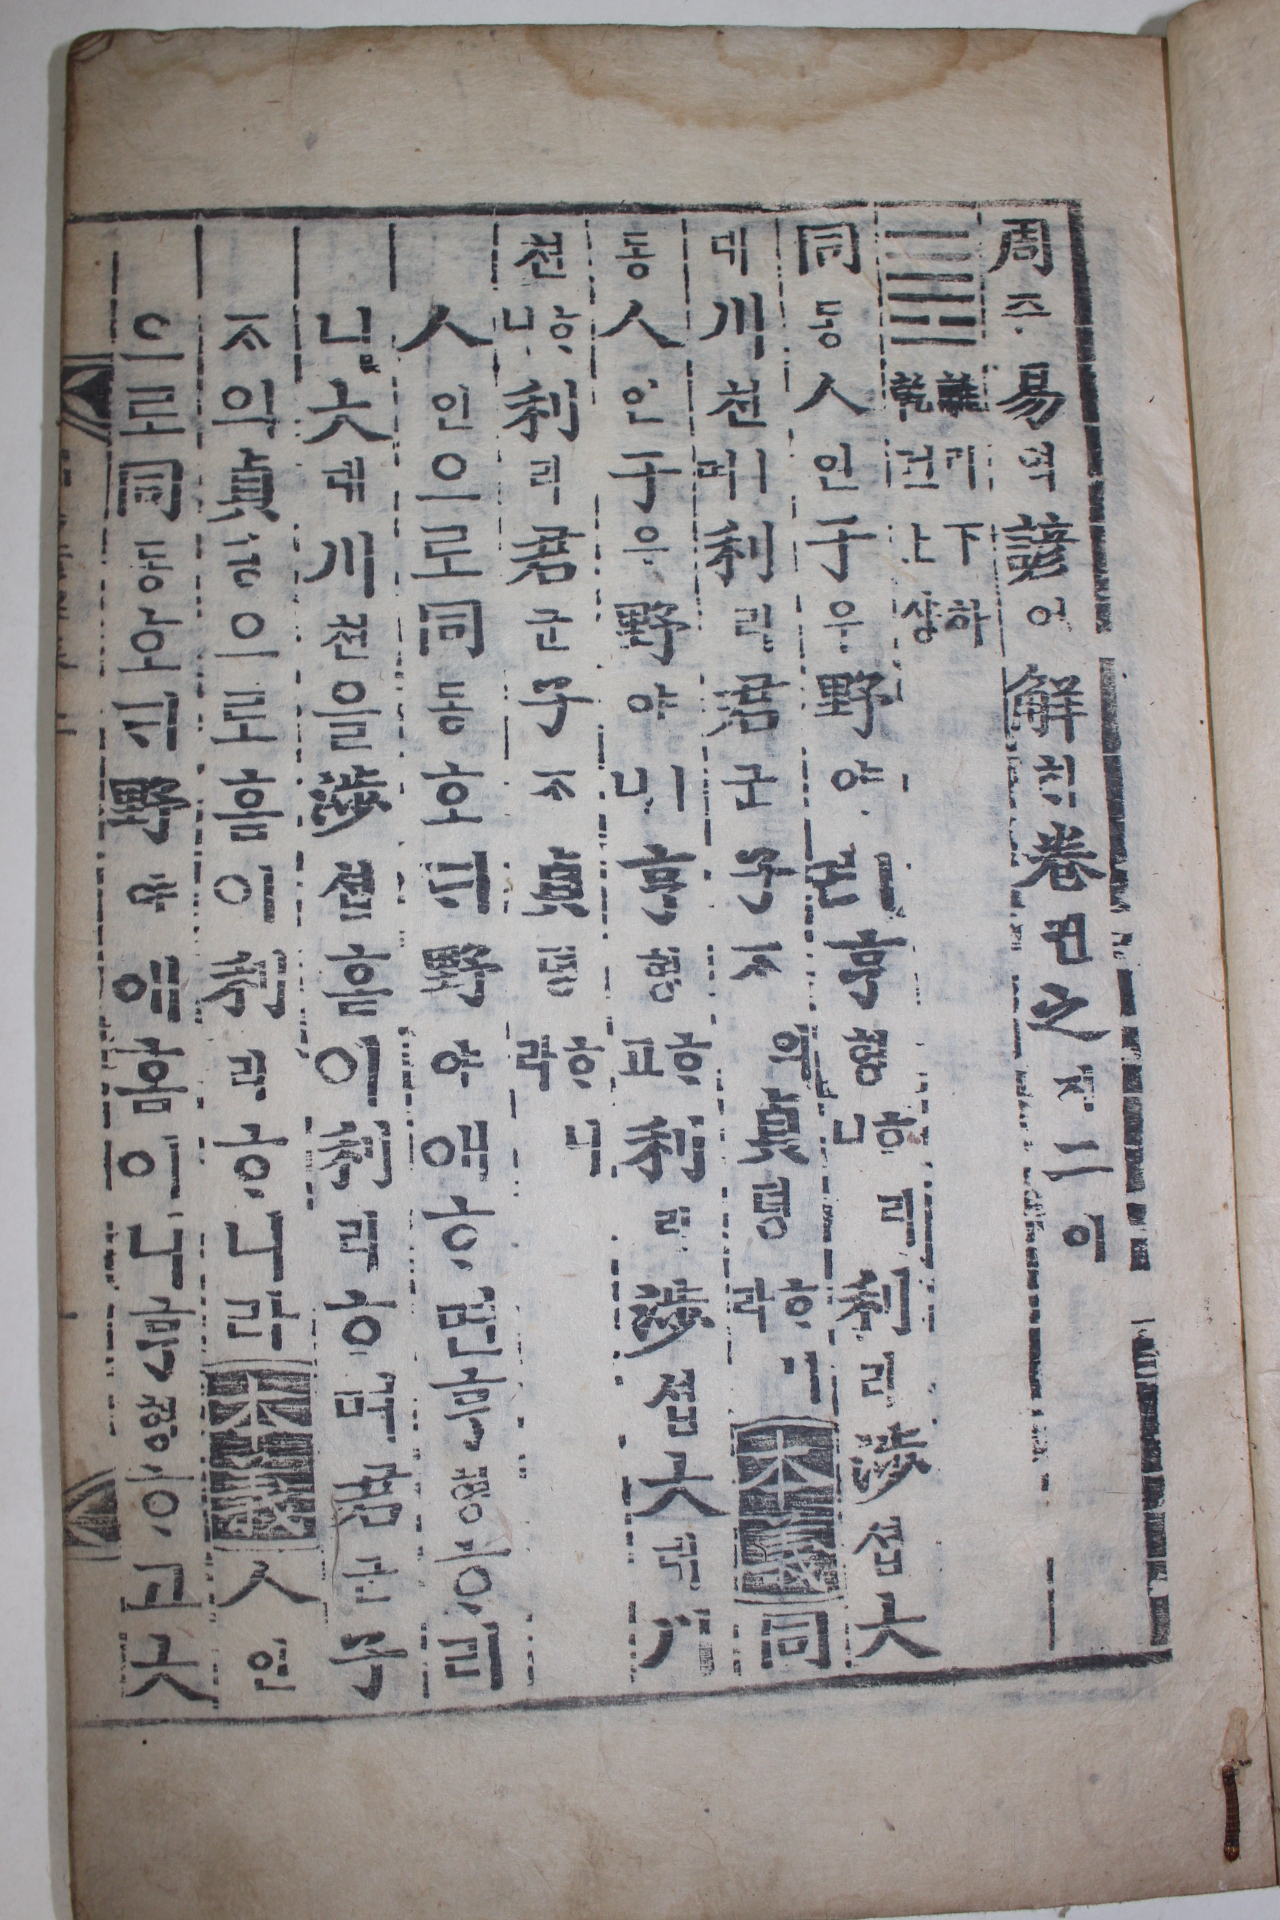 周쥬易역諺언解ᄒᆡ卷권之지二이
䷌ 離리下하 乾건上샹
同동人인于우野야ㅣ면亨형ᄒᆞ리니利리涉셥大
대川쳔이며利리君군子ᄌᆞ의貞뎡ᄒᆞ니라 本義 同
동人인于우野야ㅣ니亨형ᄒᆞ고利리涉셥大대川
쳔ᄒᆞ니利리君군子ᄌᆞ貞뎡ᄒᆞ니라
人인으로同동호ᄃᆡ野야애ᄒᆞ면亨형ᄒᆞ리
니大대川쳔을涉셥홈이利리ᄒᆞ며君군子
ᄌᆞ의貞뎡으로홈이利리ᄒᆞ니라 本義 人인
으로同동호ᄃᆡ野야애홈이니亨형ᄒᆞ고大